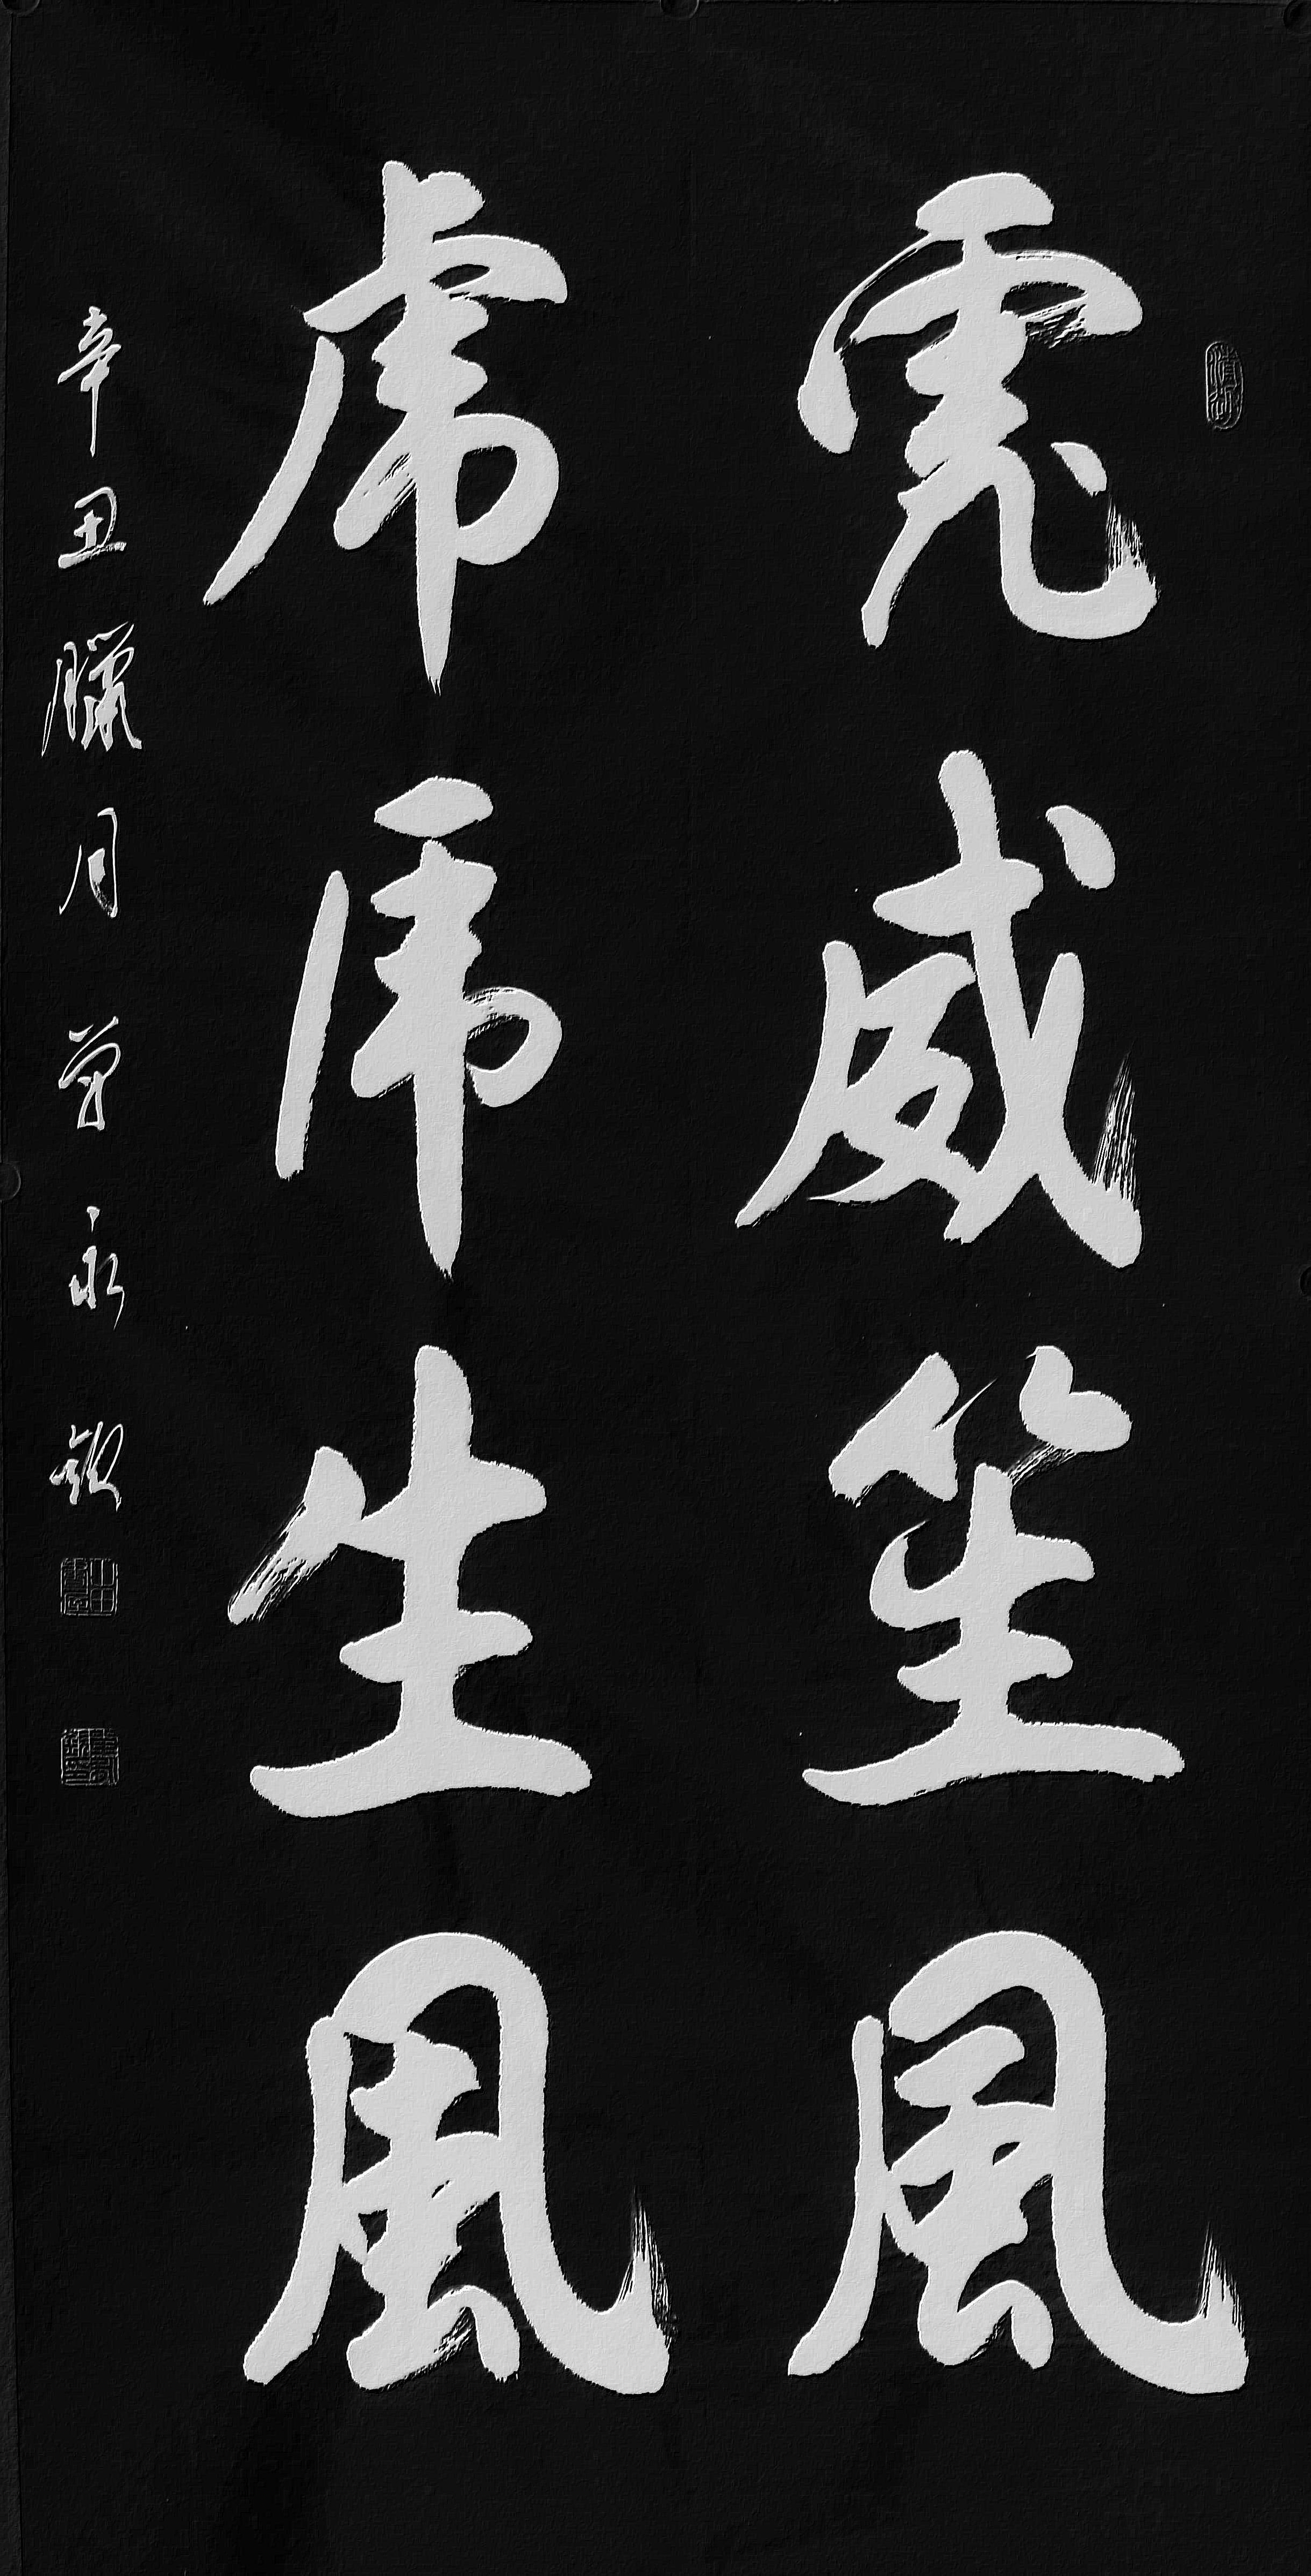 虎威笙風
虎虎生風
辛丑臘月 曾永欽